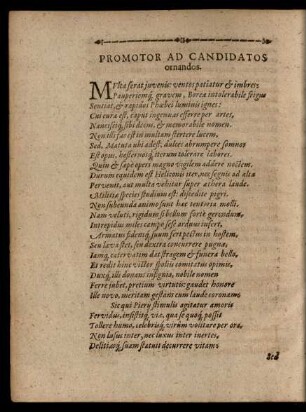 PROMOTOR AD CANDIDATOS
ornandos.
MUlta ferat juvenis: ventos patiatur & imbreis
Pauperiemq́; gravem, Boreæ intolerabile frigus
Sentiat, & rapidos Phœbei luminis ignes:
Cui cura est, capti ingenuas efferre per artes,
Nancisciq́; sibi decus, & memorabile nomen.
Non illi fas est in multam stertere lucem,
Sed, Matuta ubi adest, dulces abrumpere somnos
Est opus, hesternosq́; iterum tolerare labores.
Quin & sæpe opus magna vigilem addere noctem.
Durum equidem est Heliconis iter, nec segnis ad alta
Pervenit, aut multa vehitur super æthera laude.
Militiæ species studium est: discedite pigri.
Non subeunda animo sunt hæc tentoria molli.
Nam veluti, rigidum si bellum forte gerundum,
Intrepidus miles campo sese arduus infert,
Armatus fidensq́; suum fert pectus in hostem,
Seu læva stet, seu dextra concurrere pugna,
Jamq́; catervatim dat stragem & funera bello,
Et redit hinc victor spoliis comitatus opimis,
Duxq́; illi donans insignia, nobile nomen
Ferre jubet, pretium virtutis gaudet honore
Ille novo, meritam gestans cum laude coronam:
Sic qui Pierii stimulis agitatur amoris
Fervidus, insistitq́; viæ, qua se quoq́; possit
Tollere humo, celebrisq́; virûm volitare per ora,
Non lusus inter, nec luxus inter inertes,
Desitiasq́; suam statuit decurrere vitam:
Sed